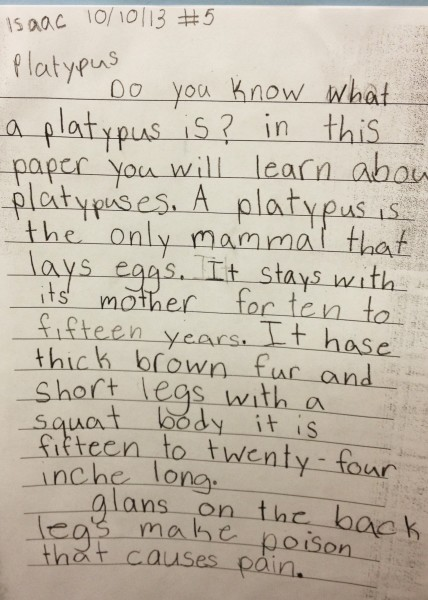 Isaac 10/10/13 #5
Platypus
Do you know what
a platypus is? in this
paper you will learn abou
platypuses. A platypus is
the only mammal that
lays eggs. It stays with
its mother for ten to
fifteen years. It hase
thick brown fur and
short legs with a
squat body it is
fifteen to twenty-four
inche long.
glans on the back
legs make poison
that causes pain.